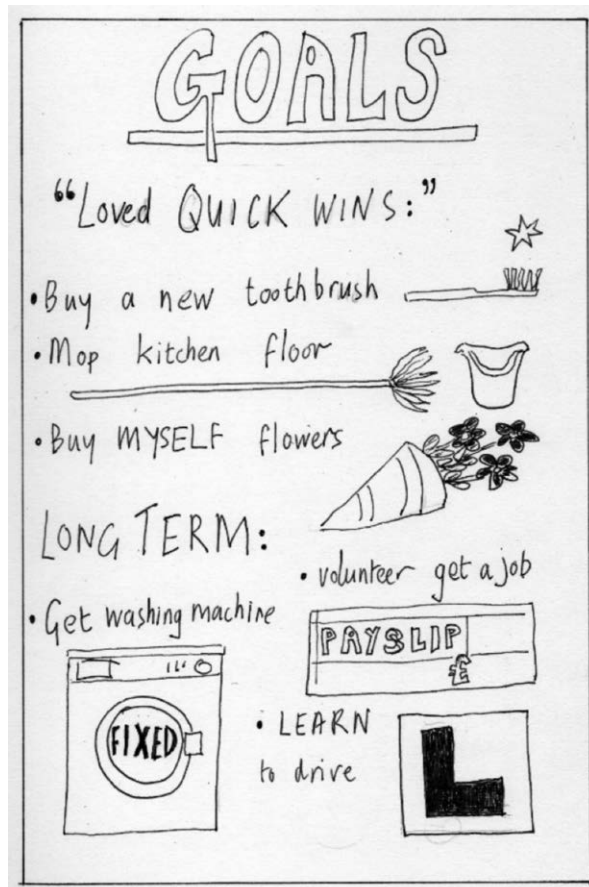 GOALS
“Loved QUICK WINS:”
• Buy a new toothbrush
• Mop kitchen floor
• Buy MYSELF flowers
LONG TERM:
• volunteer get a job
• Get washing machine
PAYSLIP
£
FIXED
• LEARN
to drive
L